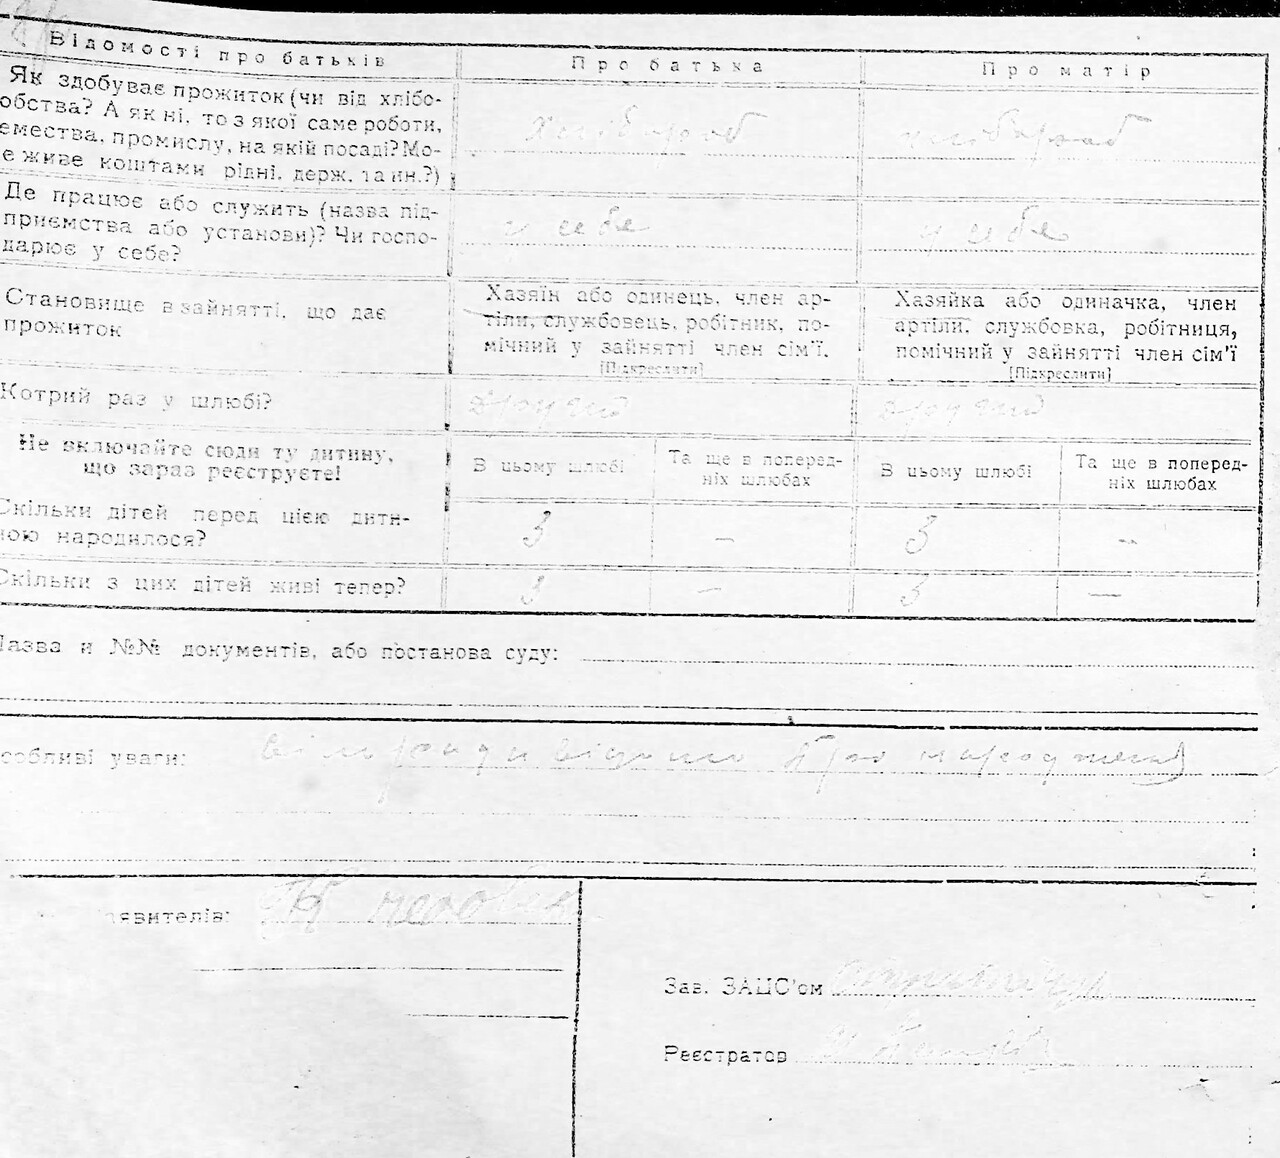 Відомості про батьків
Про батька
Про матір
Як здобуває прожиток (чи від хлібо-
обства? А як ні, то з якої саме роботи,
емества, промислу, на якій посаді? Мо-
е живе коштами рідні, держ. та ин.?)
хлібороб
хлібороб
Де працює або служить (назва під-
приємства або установи)? Чи госпо-
дарює у себе?
у себе
у себе
Становище в зайнятті, що дає
прожиток
Хазяїн або одинець, член ар-
тіли, службовець, робітник, по-
мічний у зайнятті член сім'ї.
[Підкреслити]
Хазяйка або одиначка, член
артіли, службовка, робітниця,
помічний у зайнятті член сім'ї
[Підкреслити]
Котрий раз у шлюбі?
Не включайте сюди ту дитину,
що зараз реєструєте!
В цьому шлюбі
Та ще в поперед-
ніх шлюбах
В цьому шлюбі
Та ще в поперед-
ніх шлюбах
Скільки дітей перед цією дити-
ною народилося?
3
—
3
—
Скільки з цих дітей живі тепер?
3
—
3
—
Назва и №№ документів, або постанова суду:
особливі уваги:
про народження
аявителів:
Зав. ЗАЦС'ом
Реєстратор